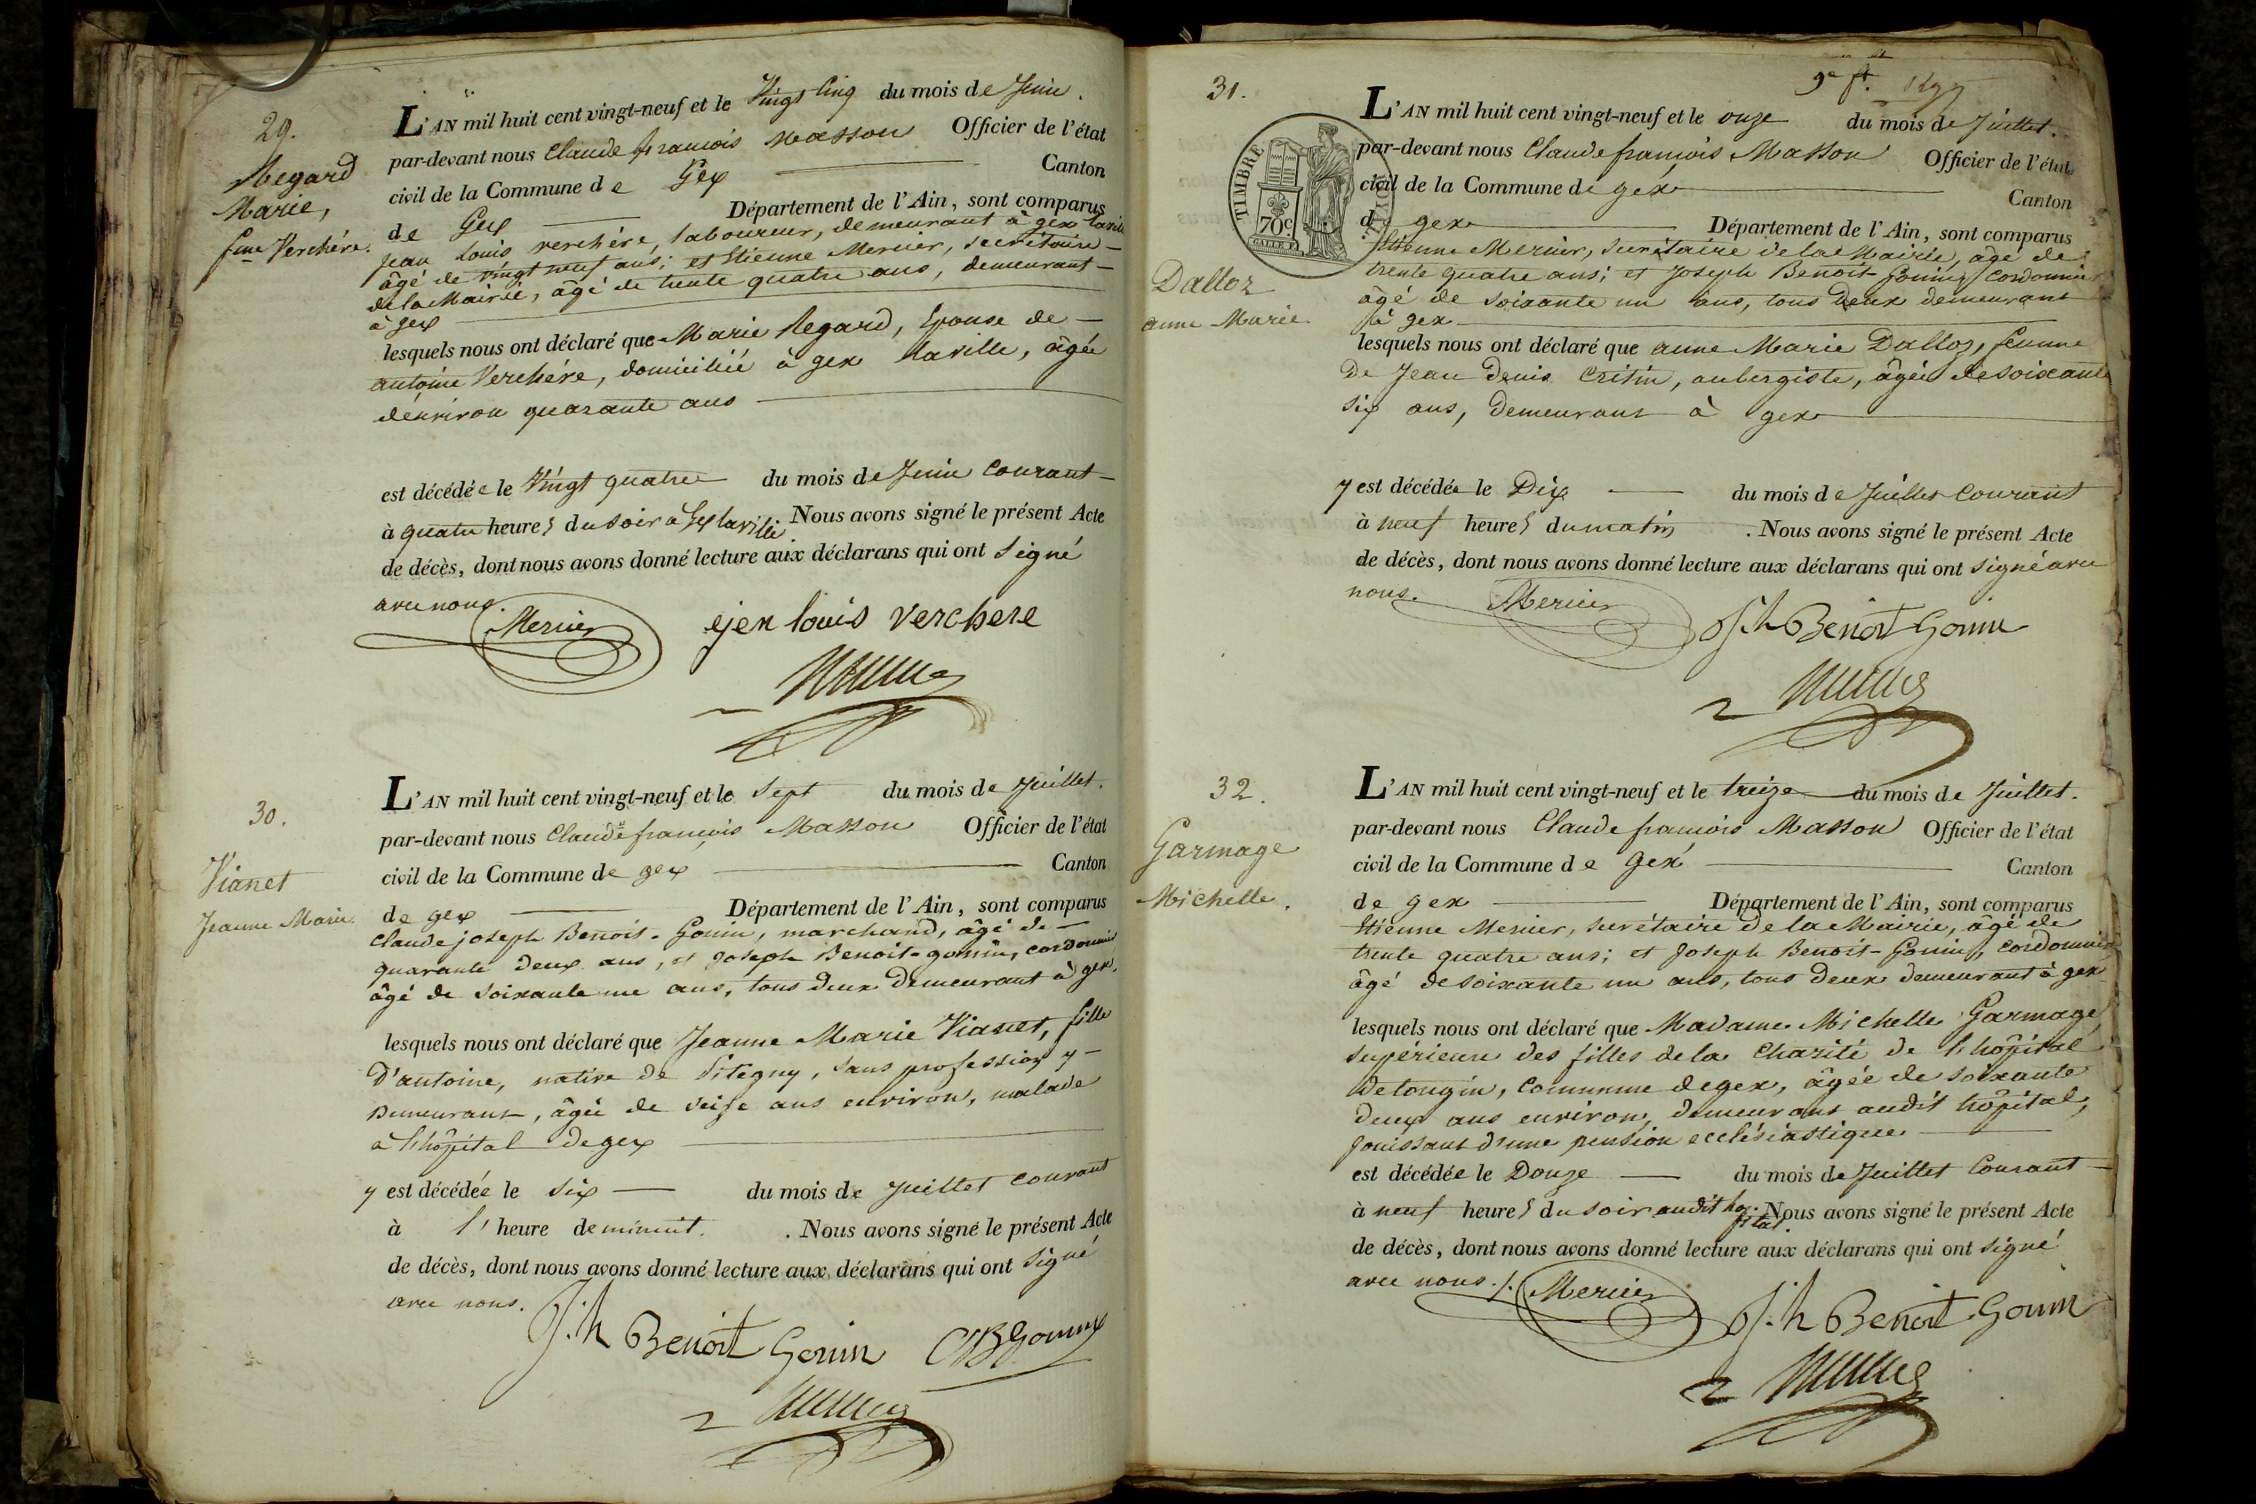 29.
Regard
Marie,
fme Verchére.
L'AN mil huit cent vingt-neuf et le Vingt Cinq du mois de Juin.
par-devant nous Claude françois Masson Officier de l'état
civil de la Commune de Gex Canton
de Gex Département de l'Ain, sont comparus
Jean Louis verchére, laboureur, demeurant à gex laville
âgé de vingt neuf ans; et Etienne Mercier, secrétaire
de la Mairie, âgé de trente quatre ans, demeurant
à gex
lesquels nous ont déclaré que Marie Regard, Epouse de
antoine Verchére, domiciliée à gex laville, âgée
d'environ quarante ans
est décédée le Vingt quatre du mois de Juin Courant
à quatre heures du soir à Gex laville. Nous avons signé le présent Acte
de décès, dont nous avons donné lecture aux déclarans qui ont signé
avec nous.
Mercier
ejen louis verchere
30.
Vianet
Jeanne Marie.
L'AN mil huit cent vingt-neuf et le sept du mois de Juillet.
par-devant nous Claude françois Masson Officier de l'état
civil de la Commune de gex Canton
de gex Département de l'Ain, sont comparus
Claude joseph Benoit-Gonin, marchand, âgé de
quarante deux ans, et Joseph Benoit-gonin, cordonnier
âgé de soixante un ans, tous deux demeurant à gex.
lesquels nous ont déclaré que Jeanne Marie Vianet, fille
D'antoine, native de Sitegny, sans profession y
Demeurant, âgée de seize ans environ, malade
à l'hôpital de gex
y est décédée le six du mois de Juillet courant
à l'heure de minuit. . Nous avons signé le présent Acte
de décès, dont nous avons donné lecture aux déclarans qui ont signé
avec nous.
J.h Benoit Gonin CJBGonin
31.
9e f.t
TIMBRE ROYAL
70c
Dalloz
anne Marie.
L'AN mil huit cent vingt-neuf et le onze du mois de Juillet.
par-devant nous Claude françois Masson Officier de l'état
civil de la Commune de gex Canton
de gex Département de l'Ain, sont comparus
Etienne Mercier, secrétaire de la Mairie, âgé de
trente quatre ans; et Joseph Benoit-Gonin, Cordonnier
âgé de soixante un ans, tous deux demeurant
à gex
lesquels nous ont déclaré que anne Marie Dalloz, femme
De Jean Denis Critin, aubergiste, âgée de soixante
six ans, Demeurant à gex
y est décédée le Dix du mois de Juillet Courant
à neuf heures du matin . Nous avons signé le présent Acte
de décès, dont nous avons donné lecture aux déclarans qui ont signé avec
nous.
Mercier
J.h Benoit Gonin
32.
Garmage
Michelle.
L'AN mil huit cent vingt-neuf et le treize du mois de Juillet.
par-devant nous Claude françois Masson Officier de l'état
civil de la Commune de Gex Canton
de gex Département de l'Ain, sont comparus
Etienne Mercier, secrétaire de la Mairie, âgé de
trente quatre ans; et Joseph Benoit-Gonin, Cordonnier
âgé de soixante un ans, tous deux demeurant à gex
lesquels nous ont déclaré que Madame Michelle Garmage
supérieure des filles de la Charité de l'hôpital
de tougin, commune de gex, âgée de soixante
deux ans environ, demeurant audit hôpital,
Jouissant d'une pension ecclésiastique.
est décédée le Douze du mois de Juillet Courant
à neuf heures du soir audit hôpital. Nous avons signé le présent Acte
de décès, dont nous avons donné lecture aux déclarans qui ont signé
avec nous./.
Mercier
J.h Benoit Gonin